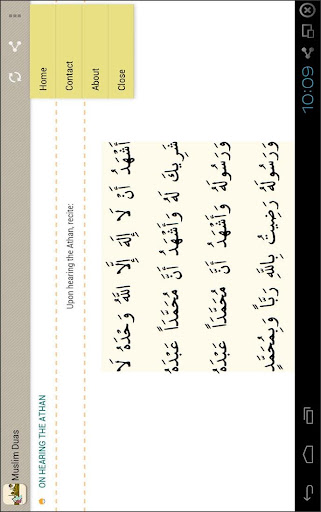 Muslim Duas
ON HEARING THE ATHAN
Home
Contact
About
Close
Upon hearing the Athan, recite:
أَشْهَدُ أَنْ لَا إِلَهَ إِلَّا اللَّهُ وَحْدَهُ لَا
شَرِيكَ لَهُ وَأَشْهَدُ أَنَّ مُحَمَّداً عَبْدُهُ
وَرَسُولُهُ وَأَشْهَدُ أَنَّ مُحَمَّداً عَبْدُهُ
وَرَسُولُهُ رَضِيتُ بِاللَّهِ رَبّاً وَبِمُحَمَّدٍ
10:09